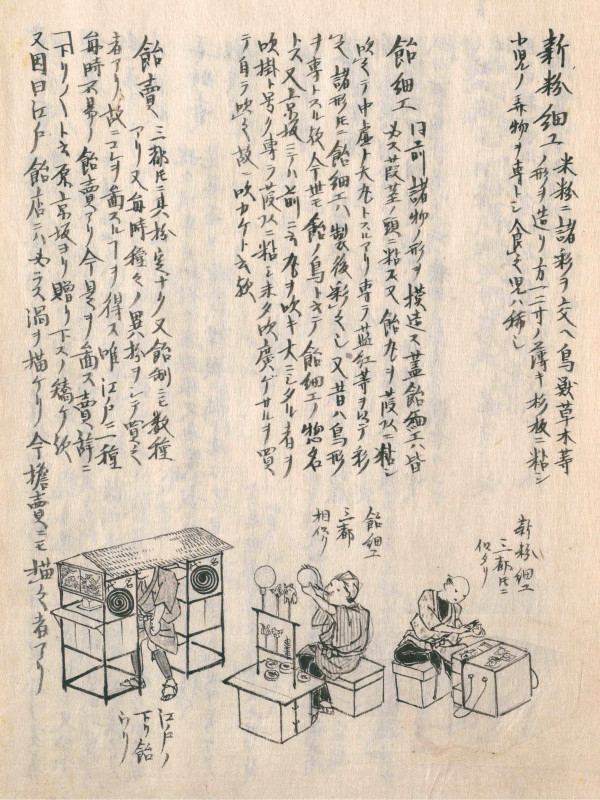 新粉細工 米粉ニ諸彩ヲ交ヘ鳥獣草木等
ノ形ヲ造リ方一二寸ノ薄キ杉板ニ粘シ
小児ノ弄物ヲ専トシ食之児ハ稀也
飴細工 同前諸物ノ形ヲ模造ス蓋飴細工ハ皆
必ス葭茎ノ頭ニ粘ス又飴丸ヲ葭頭ニ粘シ
吹之テ中虚ト大丸トスルアリ専ラ藍紅等ヲ以テ彩
之諸形トモニ飴細工ハ製後彩之也又昔ハ鳥形
ヲ専トスル歟今世モ飴ノ鳥ト云テ飴細工ノ惣名
トス又京坂ニテハ前ニ云丸ヲ吹キ大ニシタル者ヲ
吹掛ト号ク専ラ葭頭ニ粘シ未タ吹廣ゲサルヲ買
テ自ラ吹之故ニ吹カケト云歟
飴賣 三都トモニ其扮定ナク又飴制ニモ数種
アリ又毎時種々ノ異扮ヲシテ賣之
者アリ故ニコレヲ画スルヿヲ得ス唯江戸ニ一種
毎時不易ノ飴賣アリ今是ヲ画ス賣詞ニ
下リ〱ト云原京坂ヨリ贈リ下スノ矯ケ歟
又因曰江戸飴店ニハ必ラス渦ヲ描ケリ今擔賣ニモ描之者アリ
新粉細工
三都トモニ
似タリ
飴細工
三都
相似リ
江戸ノ
下リ飴
ウリ